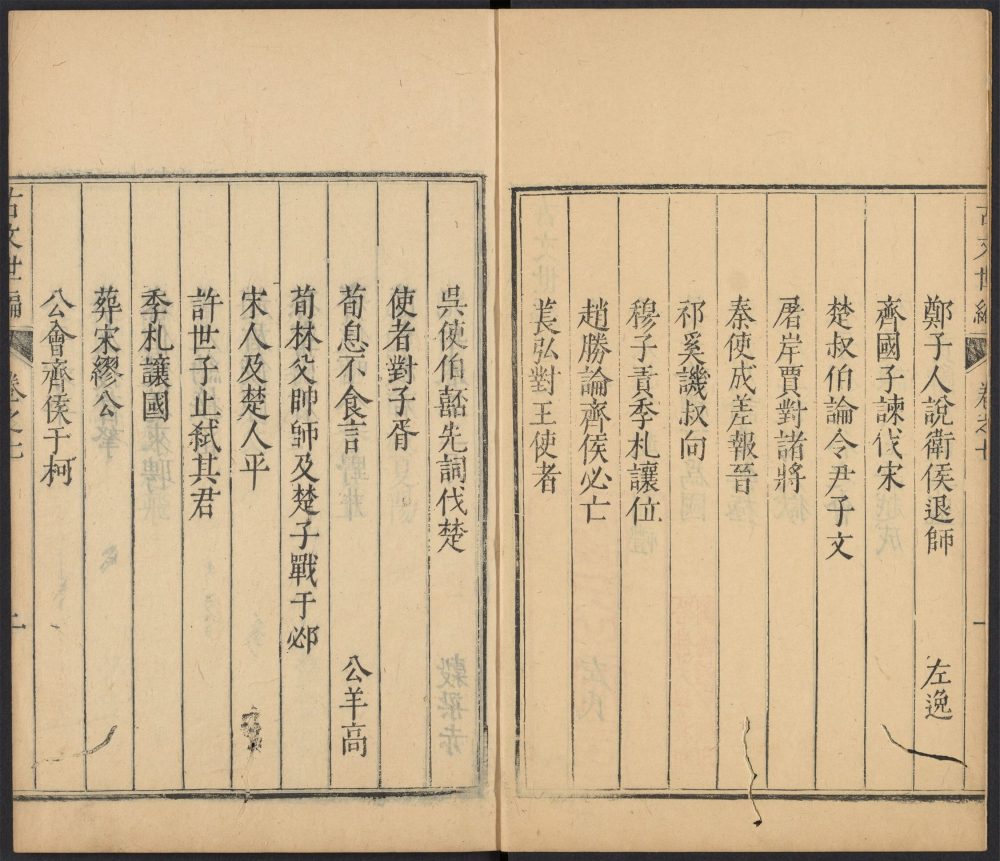 古文世編
卷之七
一
鄭子人說衛侯退師 左逸
齊國子諫伐宋
楚叔伯論令尹子文
屠岸賈對諸將
秦使成差報晉
祁奚譏叔向
穆子責季札讓位
趙勝論齊侯必亡
萇弘對王使者
吳使伯嚭先詞伐楚
使者對子胥
荀息不食言 公羊高
荀林父帥師及楚子戰于邲
宋人及楚人平
許世子止弒其君
季札讓國
葬宋繆公
公會齊侯于柯
古文世編
卷之七